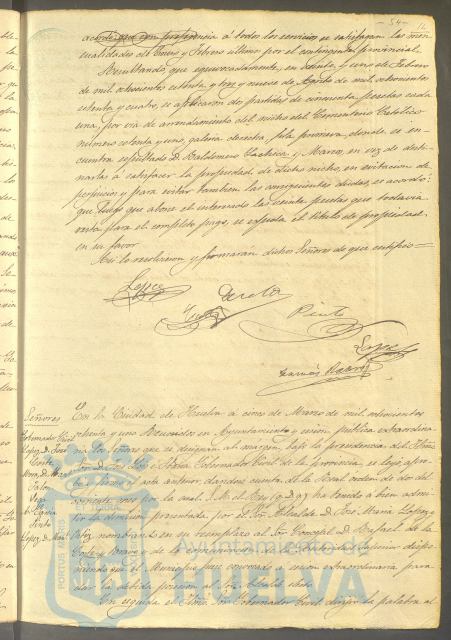 - 54 -
acordó que con preferencia á todos los servicios se satisfagan las men
sualidades de Enero y Febrero último por el contingente provincial.
Resultando, que equivocadamente, en veinte y uno de Febrero
de mil ochocientos setenta y tres y nueve de Agosto de mil ochocientos
setenta y cuatro, se aplicaron de partidas de cincuenta pesetas cada
una, por via de arrendamiento del nicho del Cementerio Católico
número setenta y uno, galeria derecha fila primera, donde se en-
cuentra sepultado D. Baldomero y Marco, en vez de desti-
narlas á satisfacer la propiedad de dicho nicho, en evitacion de
perjuicios y para evitar tambien las consiguientes dudas se acordó:
que luego que abone el interesado las veinte pesetas que todavia
resta para el completo pago, se expida el titulo de propiedad
en su favor
Asi lo resolvieron y firmarán dichos Señores de que certifico=
Lopez
Pinto
Lopez
Garcia Ramos
Señores
En la Ciudad de Huelva á cinco de Marzo de mil ochocientos
Gobernador Civil
ochenta y uno Reunidos en Ayuntamiento y sesion publica extraordina
Lopez, D. José
ria los señores que se designan al margen, bajo la presidencia del Ilmo
Señor D. José Gobernador Civil de la provincia, se leyó apro-
bó y firmó el acta anterior dandose cuenta de la Real orden de dos del
corriente mes por la cual S. M. el Rey (q. D. g.) ha tenido á bien admi-
Garcia
tir la dimision presentada por el Sor Alcalde D. José Maria Lopez y
Pinto
Lopez, D. Man.
nombrando en su reemplazo al Sor Concejal D. Rafael de la
Corte y Bravo y de
niendo que el Municipio fuese convocado á sesion extraordinaria para
dar la debida posesion al Sor Alcalde electo.
En seguida el Ilmo. Sor Gobernador Civil dirijió la palabra al
PORTUS MARIS
ET TERRAE
Ayuntamiento de
HUELVA